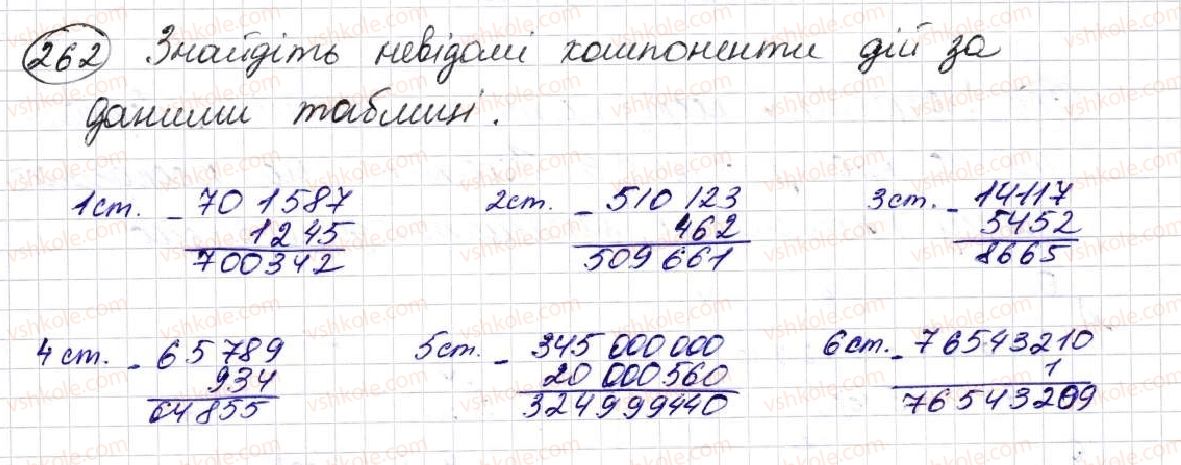 262 Знайдіть невідомі компоненти дій за
даними таблиці.
1ст. - 701587
1245
700342
2ст. - 510123
462
509661
3ст. - 14117
5452
8665
4 ст. - 65789
934
64855
5ст. - 345 000 000
20 000 560
324999440
6ст. - 76543210
1
76543209